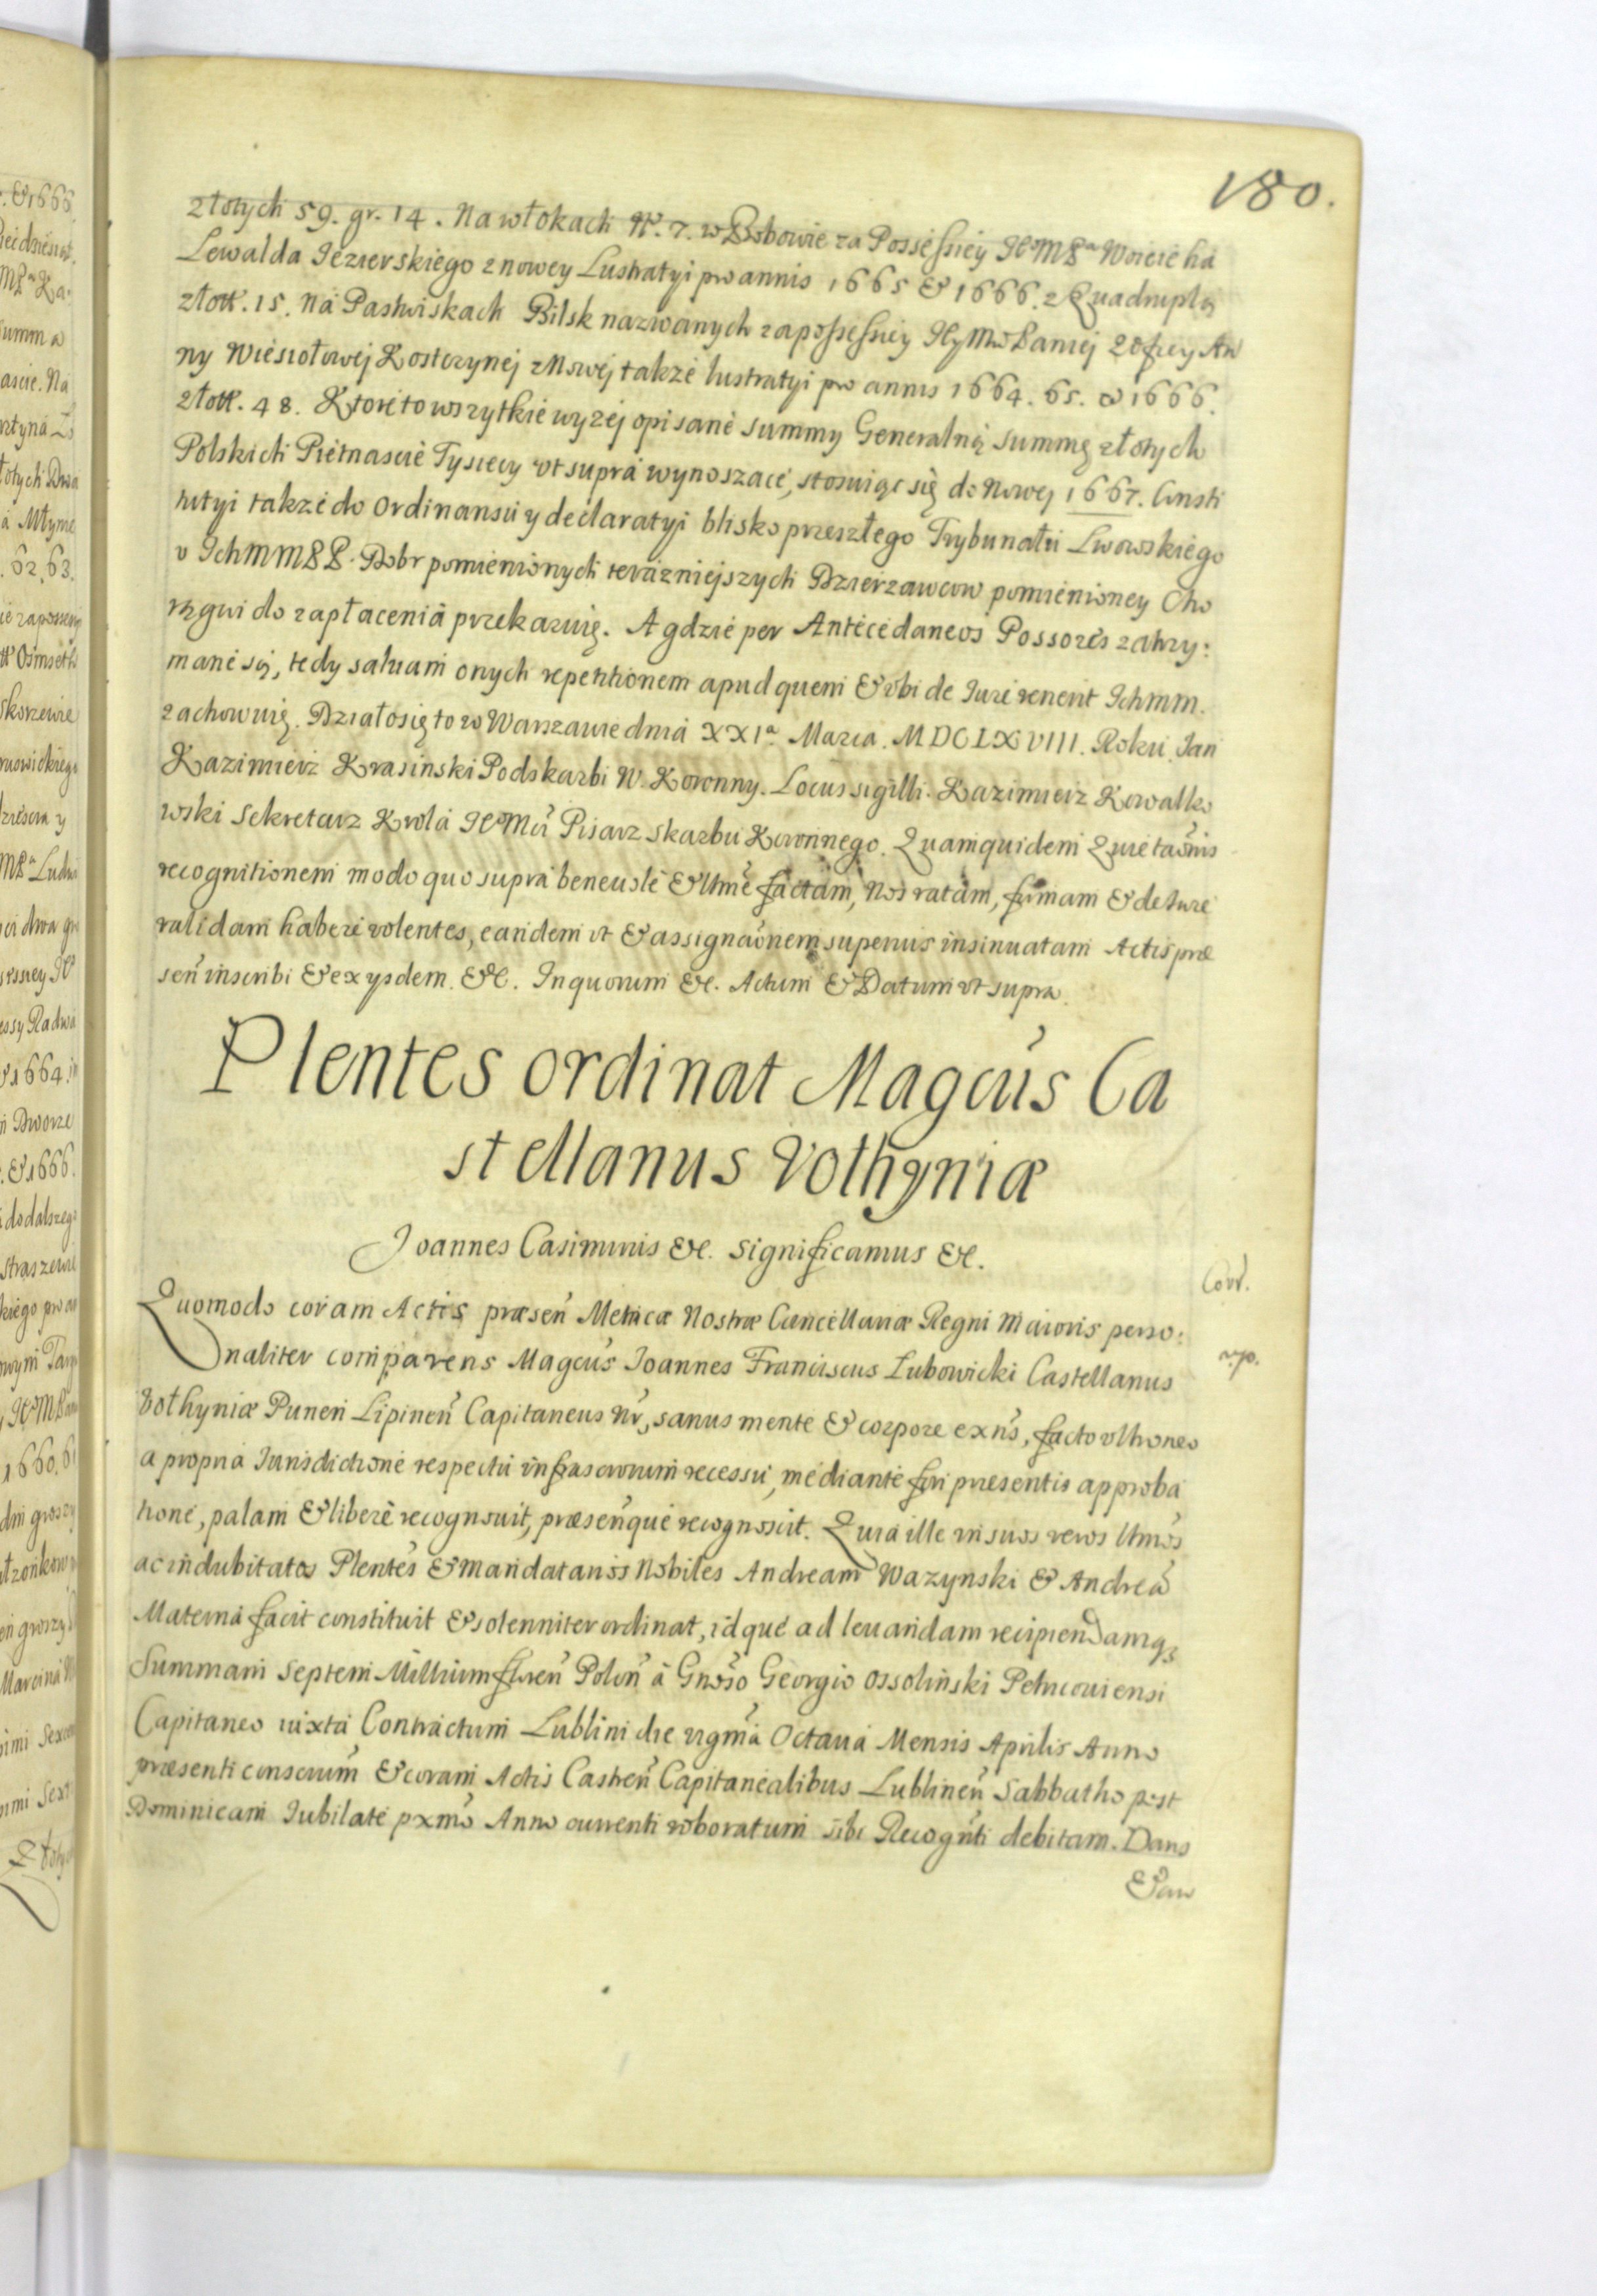 180.
złotych 59. gr. 14. Na włokach Nr. 7. w Bobowie za Possessiey Je͠Mᵽa Woiciecha
Lewalda Jezierskiego z nowey Lustratyi pro annis 1665 & 1666. z Quadruplą
złott. 15. Na Pastwiskach Bilsk nazwanych za possessiey Jey Mw Paniej Zofiey An
ny Wiesiołowej Kosteczynej z Nowej także lustratyi pro annis 1664. 65. & 1666.
złott. 48. Ktore to wszytkie wyzej opisane summy Generalną summę złotych
Polskich Piętnascie Tysiecy vt supra wynoszące, stosuiąc się do Nowej 1667. Consti
tutyi także do Ordinansu y declaratyi blisko przeszłego Trybunału Lwowskiego
v Ichmm PP. Dobr pomienionych terazniejszych Dzierzawcow pomienioney Cho
rągwi do zapłacenia przekazuię. A gdzie per Antecedaneos Possores zatrzy:
mane są, tedy saluam onych repetitionem apud quem & vbi de Iure venerit Ichmm.
zachowuię. Działo się to w Warszawie dnia XXIa. Marca. MDCLXVIII. Roku. Jan
Kazimierz Krasinski Podskarbi W. Koronny. Locus sigilli. Kazimierz Kowalko
wski Sekretarz Krola Je͠Mci Pisarz Skarbu Koronnego. Quamquidem Quietao͠nis
recognitionem modo quo supra beneuole & ltme͠ factam, Nos ratam, firmam & de Iure
validam habere volentes, eandem vt & assignao͠nem superius insinuatam Actis præ
sen͠ inscribi & ex ysdem. &c. In quorum &c. Actum & Datum vt supra.
Plentes ordinat Magcu͠s Ca
stellanus Vołhyniæ
Joannes Casimirus &c. Significamus &c.
Corr.
Quomodo coram Actis præsen͠ Metricæ Nostræ Cancellariæ Regni Maioris perso:
naliter comparens Magcu͠s Joannes Franciscus Lubowicki Castellanus
Vołhyniæ Punen Lipinen͠ Capitaneus Nr͠, sanus mente & corpore exn͠s, facto vltroneo
a propria Iurisdictione respectu infrascorum͠ recessu, mediante fori præsentis approba
tione, palam & libere recognouit, præsen͠que recognoscit. Quia ille in suos veros ltmo͠s
ac indubitatos Plentes & Mandatarios Nobiles Andream Wazynski & Andrea͠
Materna facit constituit & solenniter ordinat, idque ad leuandam recipiendamqȝ
Summam Septem Millium floren͠ Polon͠ à Gnoso͠ Georgio Ossolinski Petricouiensi
Capitaneo iuxta Contractum Lublini die vigma͠ Octaua Mensis Aprilis Anno
præsenti conscrum͠ & coram Actis Castren͠ Capitanealibus Lublinen͠ Sabbatho post
Dominicam Iubilate pxmo͠ Anno currenti roboratum sibi Recogn͠ti debitam. Dans